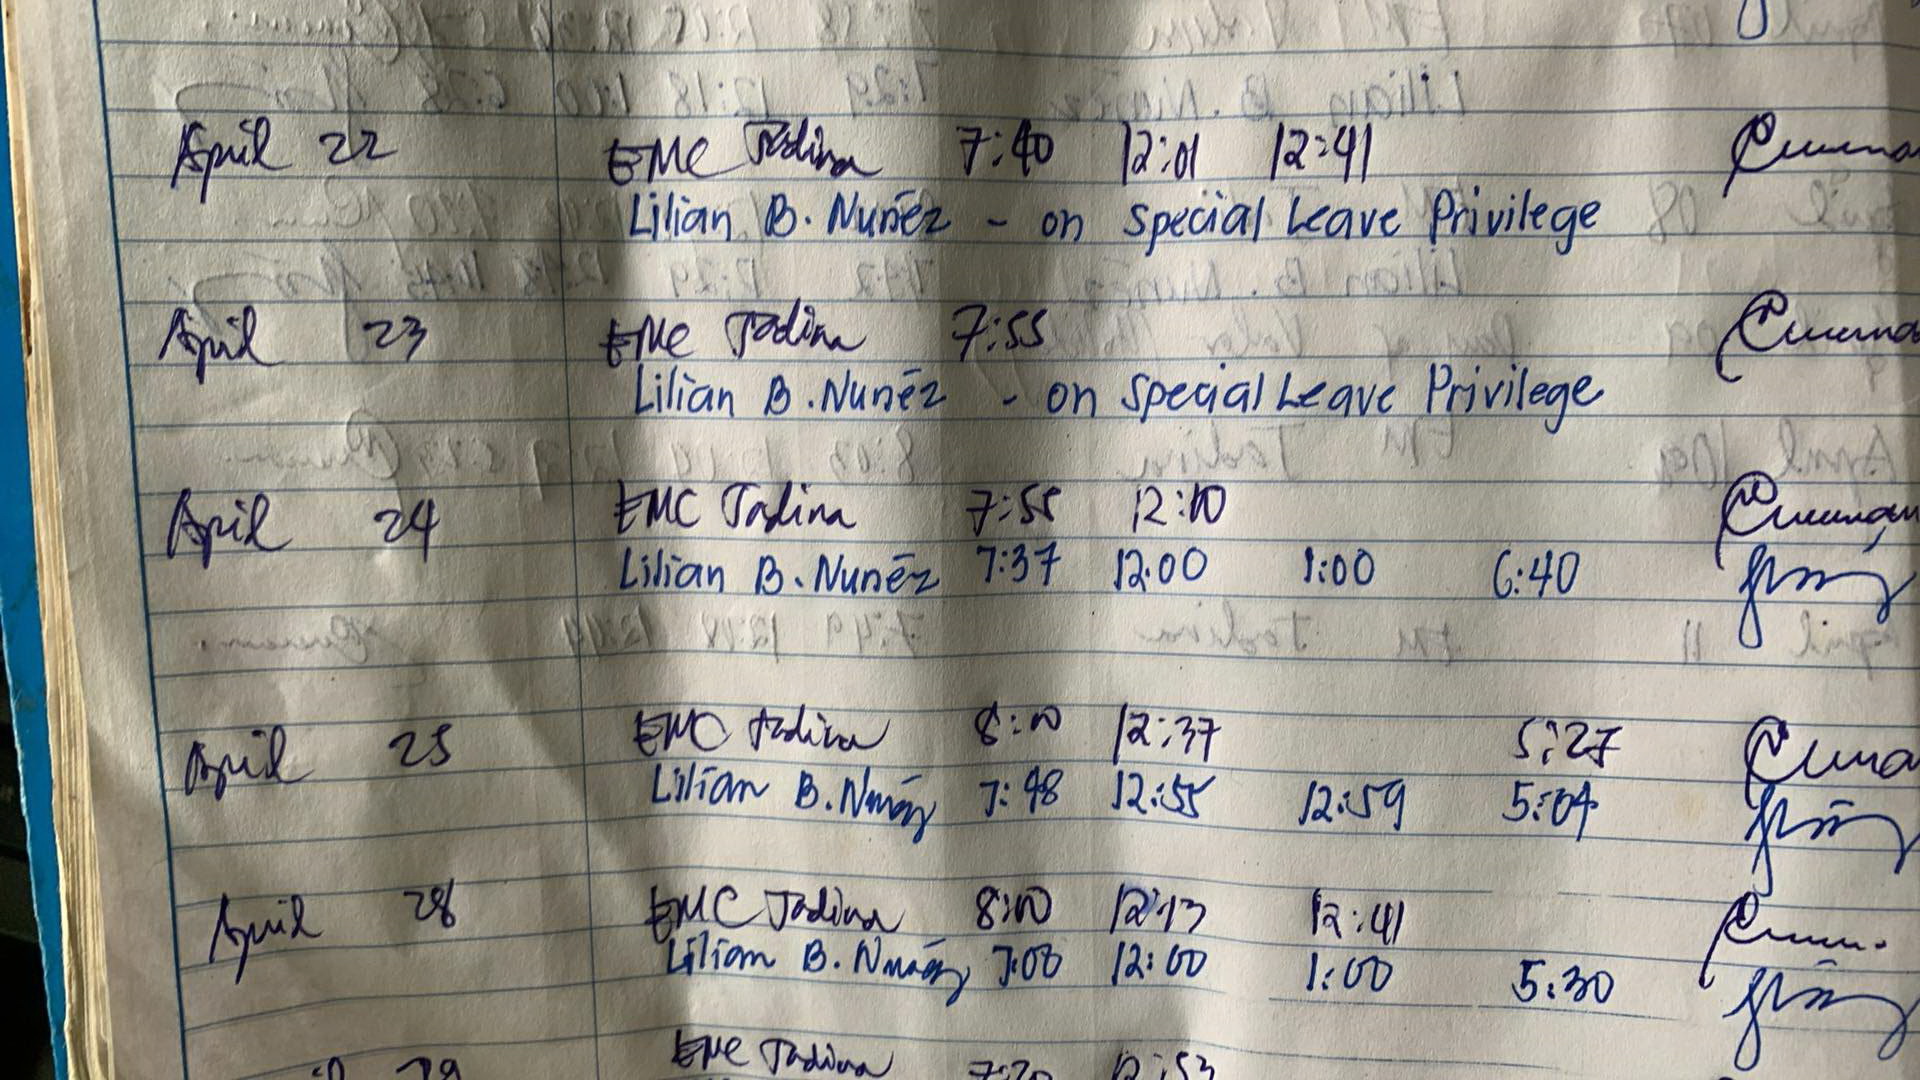 April 22 EMC Tadina 7:40 12:01 12:41
Lilian B. Nuñez - on Special Leave Privilege
April 23 EMC Tadina 7:55
Lilian B. Nuñez - on Special Leave Privilege
April 24 EMC Tadina 7:55 12:10
Lilian B. Nuñez 7:37 12:00 1:00 6:40
April 25 EMC Tadina 8:00 12:37 5:27
Lilian B. Nuñez 7:48 12:55 12:59 5:04
April 28 EMC Tadina 8:00 12:13 12:41
Lilian B. Nuñez 7:00 12:00 1:00 5:30
29 EMC Tadina 12:53